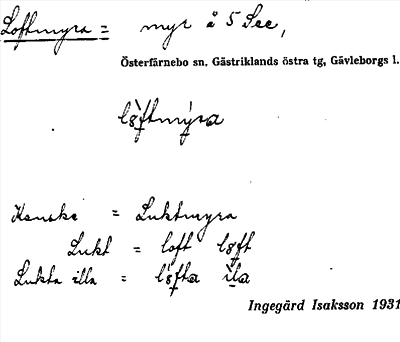 Loftmyra = myr å 5 See,
Österfärnebo sn. Gästriklands östra tg, Gävleborgs l.
lòftmýra
Kanske = Luktmyra
Lukt = loft loft
Lukta illa = lòfta ìla
Ingegärd Isaksson 1931